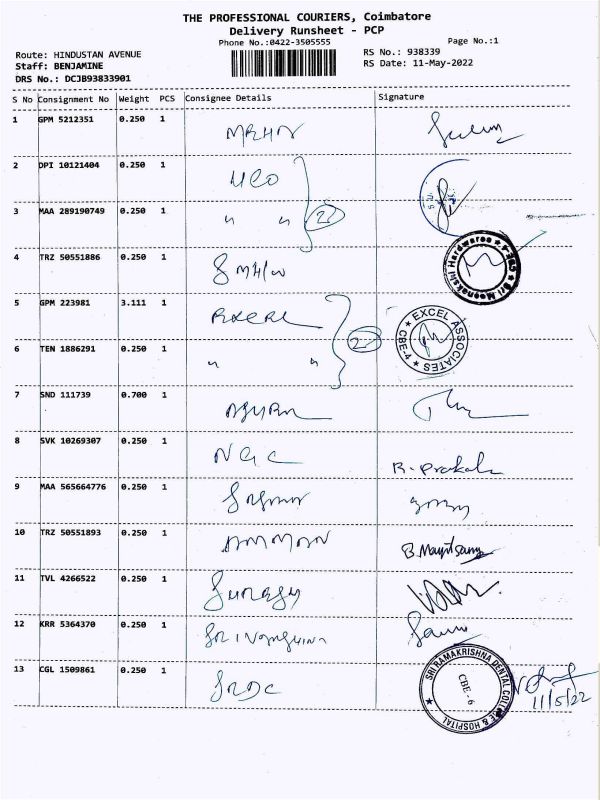 THE PROFESSIONAL COURIERS, Coimbatore
Delivery Runsheet - PCP
Phone No.:0422-3505555
Page No.:1
Route: HINDUSTAN AVENUE
RS No.: 938339
Staff: BENJAMINE
RS Date: 11-May-2022
DRS No.: DCJB93833901
S No Consignment No Weight PCS Consignee Details Signature
1 GPM 5212351 0.250 1
2 DPI 10121404 0.250 1 UCO
3 MAA 289190749 0.250 1 " "
4 TRZ 50551886 0.250 1 SMH/W Sri Meenakshi Hardwares
5 GPM 223981 3.111 1 EXCEL ASSOCIATES ★ CBE-4 ★
6 TEN 1886291 0.250 1 " "
7 SND 111739 0.700 1
8 SVK 10269307 0.250 1 NGC R. Prakash
9 MAA 565664776 0.250 1
10 TRZ 50551893 0.250 1 AMMAN
11 TVL 4266522 0.250 1
12 KRR 5364370 0.250 1
13 CGL 1509861 0.250 1 SRDC SRI RAMAKRISHNA DENTAL COLLEGE & HOSPITAL ★ CBE-6 11/5/22